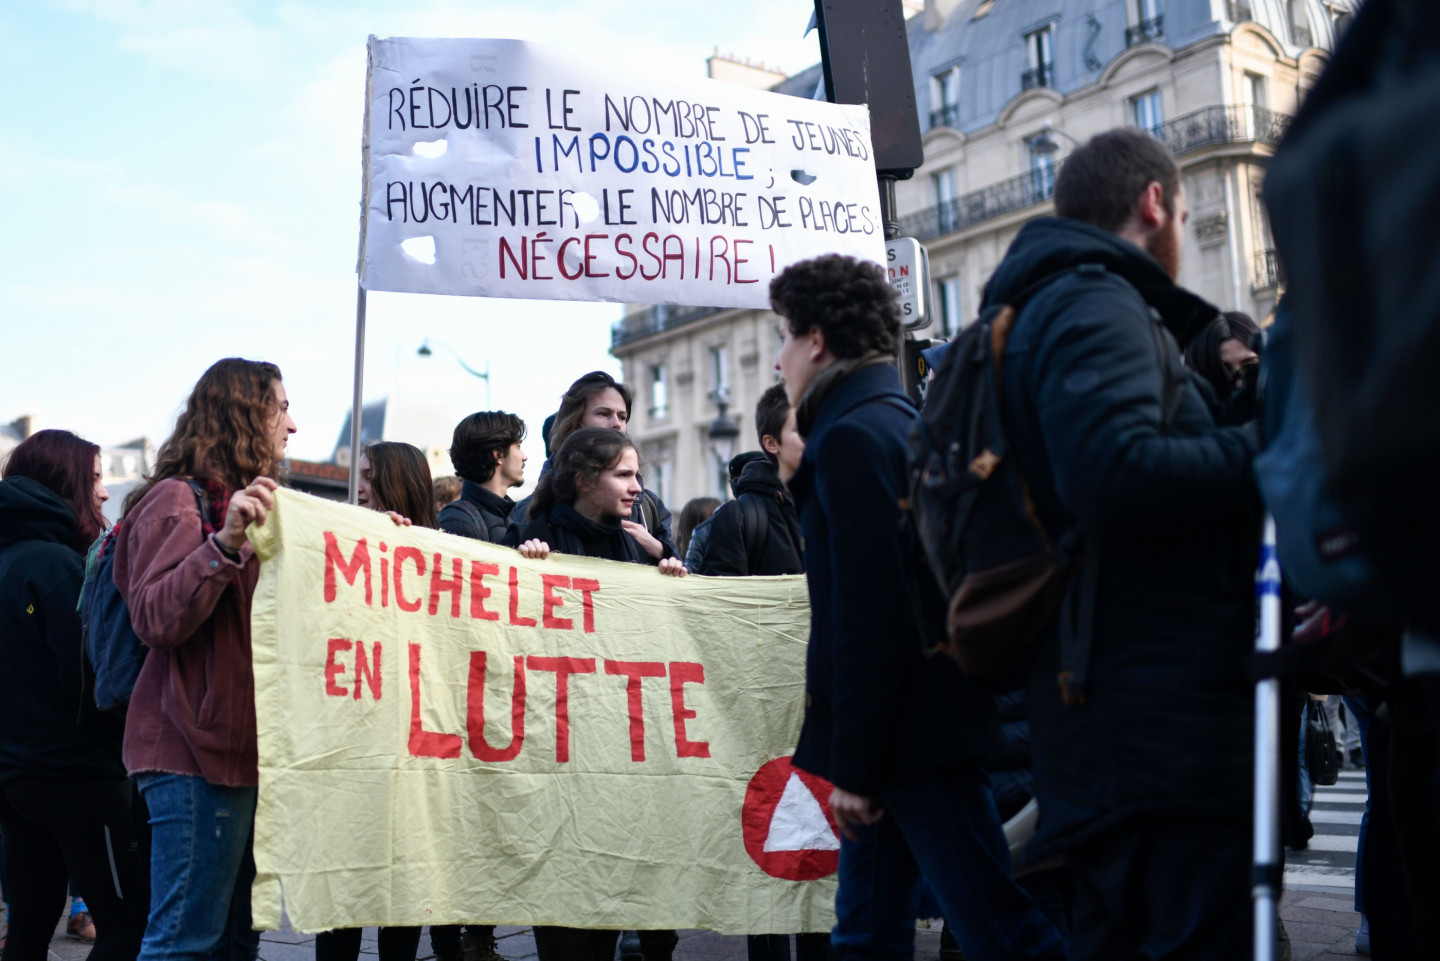 RÉDUIRE LE NOMBRE DE JEUNES
IMPOSSIBLE ;
AUGMENTER LE NOMBRE DE PLACES
NÉCESSAIRE !
MiCHELET
EN LUTTE